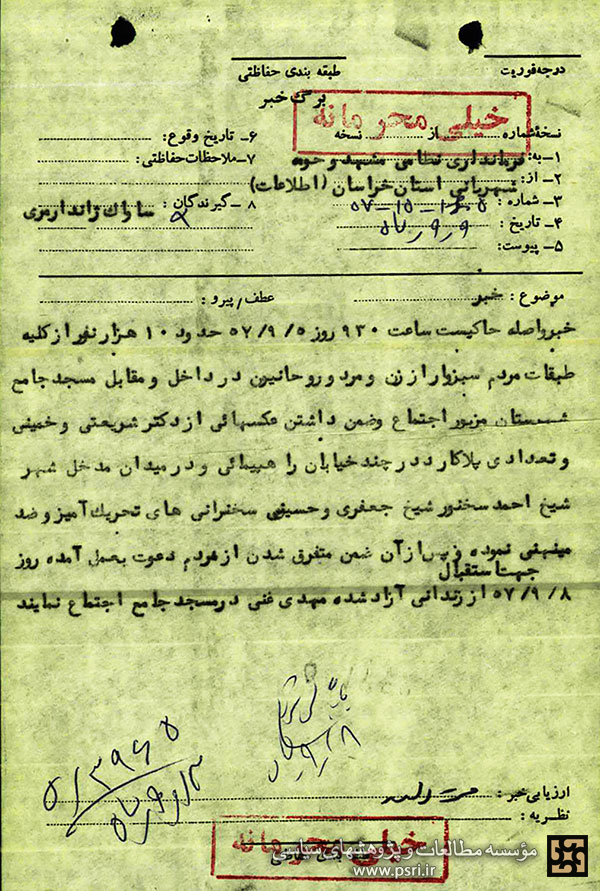 درجه فوریت
طبقه بندی حفاظتی
برگ خبر
خیلی محرمانه
نسخه شماره از نسخه
۱ـ به: فرمانداری نظامی مشهد و حومه
۲ـ از: شهربانی استان خراسان (اطلاعات)
۳ـ شماره :
۴ـ تاریخ :
۵ـ پیوست:
۶ـ تاریخ وقوع :
۷ـ ملاحظات حفاظتی:
۸ـ گیرندگان : ساواک ژاندارمری
موضوع : خبر
عطف/پیرو :
خبر واصله حاکیست ساعت ۹۳۰ روز ۵/۹/۵۷ حدود ۱۰ هزار نفر از کلیه
طبقات مردم سبزوار از زن و مرد و روحانیون در داخل و مقابل مسجد جامع
شهرستان مزبور اجتماع و ضمن داشتن عکسهائی از دکتر شریعتی و خمینی
و تعدادی پلاکارد در چند خیابان راهپیمائی و در میدان مدخل شهر
شیخ احمد سخنور شیخ جعفری و حسینی سخنرانی های تحریک آمیز و ضد
میهنی نموده و پس از آن ضمن متفرق شدن از مردم دعوت بعمل آمده روز
جهت استقبال
۸/۹/۵۷ از زندانی آزاد شده مهدی غنی در مسجد جامع اجتماع نمایند
ارزیابی خبر :
نظریه :
خیلی محرمانه
مؤسسه مطالعات و پژوهشهای سیاسی
www.psri.ir